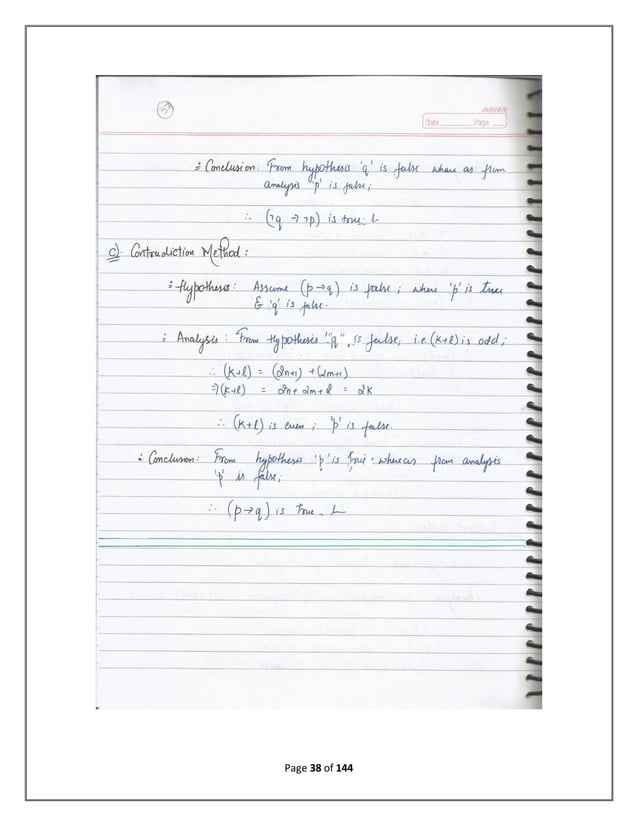 Date Page
∴ Conclusion: From hypothesis 'q' is false where as from
analysis 'p' is false;
∴ (¬q → ¬p) is true.
c). Contradiction Method :
∴ Hypotheses: Assume (p→q) is false ; where 'p' is true
& 'q' is false.
∴ Analysis : From Hypothesis "q" is false, i.e (k+l) is odd;
∴ (k+l) = (2n+1) + (2m+1)
⇒ (k+l) = 2n+ 2m+ 2 = 2k
∴ (k+l) is even ; 'p' is false.
∴ Conclusion: From hypothesis 'p' is true whereas from analysis
'p' is false;
∴ (p→q) is true
Page 38 of 144